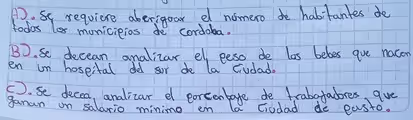 A). Se requiere aberigoar el número de habitantes de
todos los municipios de cordoba.
B). Se decean analizar el peso de los bebes que nacen
en un hospital del sur de la Ciudad.
C). Se decea, analizar el porcentage de trabajadores que
ganan un salario minimo en la Ciudad de pasto.